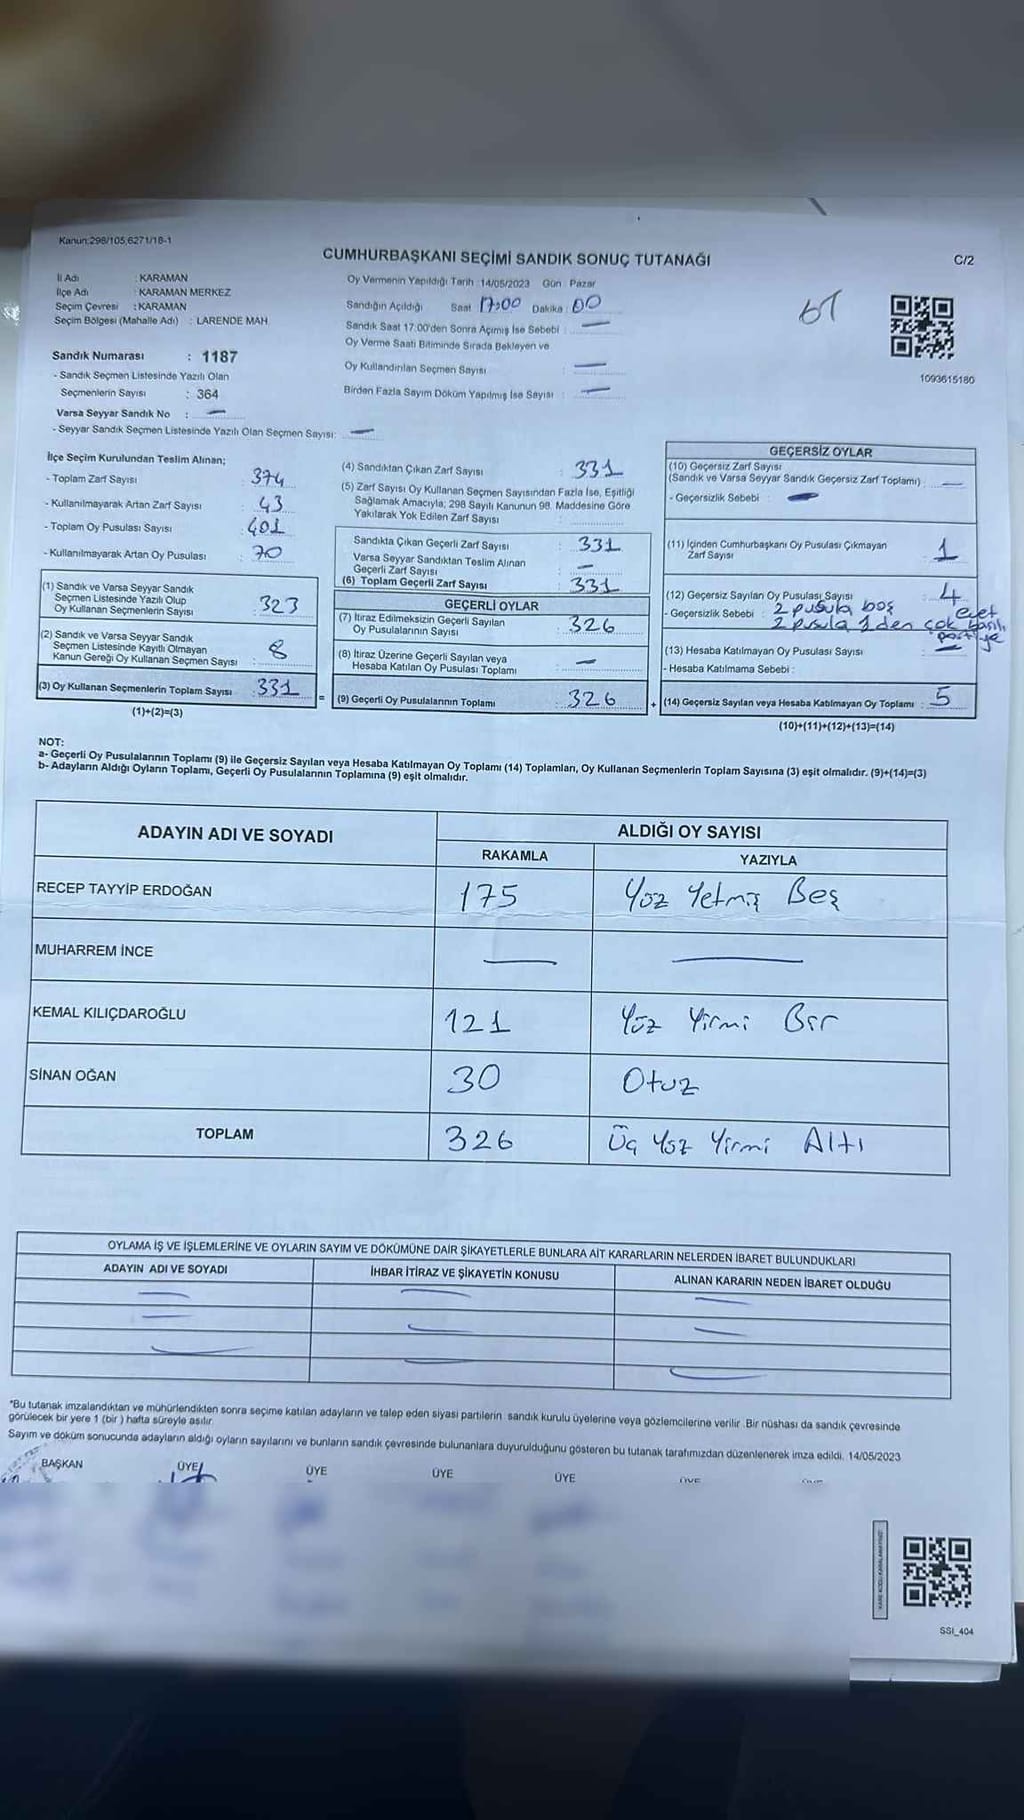 Kanun:298/105,6271/18-1
CUMHURBAŞKANI SEÇİMİ SANDIK SONUÇ TUTANAĞI
C/2
İl Adı : KARAMAN
İlçe Adı : KARAMAN MERKEZ
Seçim Çevresi : KARAMAN
Seçim Bölgesi (Mahalle Adı) : LARENDE MAH.
Oy Vermenin Yapıldığı Tarih :14/05/2023 Gün : Pazar
Sandığın Açıldığı Saat 17:00 Dakika : 00
Sandık Saat 17:00'den Sonra Açılmış İse Sebebi : —
Oy Verme Saati Bitiminde Sırada Bekleyen ve
Oy Kullandırılan Seçmen Sayısı : —
Birden Fazla Sayım Döküm Yapılmış İse Sayısı : —
1093615180
Sandık Numarası : 1187
- Sandık Seçmen Listesinde Yazılı Olan
Seçmenlerin Sayısı : 364
Varsa Seyyar Sandık No : —
- Seyyar Sandık Seçmen Listesinde Yazılı Olan Seçmen Sayısı: —
İlçe Seçim Kurulundan Teslim Alınan;
- Toplam Zarf Sayısı : 374
- Kullanılmayarak Artan Zarf Sayısı : 43
- Toplam Oy Pusulası Sayısı : 401
- Kullanılmayarak Artan Oy Pusulası : 70
(1) Sandık ve Varsa Seyyar Sandık
Seçmen Listesinde Yazılı Olup
Oy Kullanan Seçmenlerin Sayısı : 323
(2) Sandık ve Varsa Seyyar Sandık
Seçmen Listesinde Kayıtlı Olmayan
Kanun Gereği Oy Kullanan Seçmen Sayısı : 8
(3) Oy Kullanan Seçmenlerin Toplam Sayısı : 331
(1)+(2)=(3)
(4) Sandıktan Çıkan Zarf Sayısı : 331
(5) Zarf Sayısı Oy Kullanan Seçmen Sayısından Fazla İse, Eşitliği
Sağlamak Amacıyla; 298 Sayılı Kanunun 98. Maddesine Göre
Yakılarak Yok Edilen Zarf Sayısı :
Sandıkta Çıkan Geçerli Zarf Sayısı : 331
Varsa Seyyar Sandıktan Teslim Alınan
Geçerli Zarf Sayısı : —
(6) Toplam Geçerli Zarf Sayısı : 331
GEÇERLİ OYLAR
(7) İtiraz Edilmeksizin Geçerli Sayılan
Oy Pusulalarının Sayısı : 326
(8) İtiraz Üzerine Geçerli Sayılan veya
Hesaba Katılan Oy Pusulası Toplamı : —
= (9) Geçerli Oy Pusulalarının Toplamı : 326
GEÇERSİZ OYLAR
(10) Geçersiz Zarf Sayısı
(Sandık ve Varsa Seyyar Sandık Geçersiz Zarf Toplamı) : —
- Geçersizlik Sebebi : —
(11) İçinden Cumhurbaşkanı Oy Pusulası Çıkmayan
Zarf Sayısı : 1
(12) Geçersiz Sayılan Oy Pusulası Sayısı : 4
- Geçersizlik Sebebi : 2 pusula boş evet
2 pusula 1'den çok basılı
partiye
(13) Hesaba Katılmayan Oy Pusulası Sayısı : —
- Hesaba Katılmama Sebebi :
+ (14) Geçersiz Sayılan veya Hesaba Katılmayan Oy Toplamı : 5
(10)+(11)+(12)+(13)=(14)
NOT:
a- Geçerli Oy Pusulalarının Toplamı (9) ile Geçersiz Sayılan veya Hesaba Katılmayan Oy Toplamı (14) Toplamları, Oy Kullanan Seçmenlerin Toplam Sayısına (3) eşit olmalıdır. (9)+(14)=(3)
b- Adayların Aldığı Oyların Toplamı, Geçerli Oy Pusulalarının Toplamına (9) eşit olmalıdır.
ADAYIN ADI VE SOYADI ALDIĞI OY SAYISI
RAKAMLA YAZIYLA
RECEP TAYYİP ERDOĞAN 175 Yüz Yetmiş Beş
MUHARREM İNCE — —
KEMAL KILIÇDAROĞLU 121 Yüz Yirmi Bir
SİNAN OĞAN 30 Otuz
TOPLAM 326 Üç Yüz Yirmi Altı
OYLAMA İŞ VE İŞLEMLERİNE VE OYLARIN SAYIM VE DÖKÜMÜNE DAİR ŞİKAYETLERLE BUNLARA AİT KARARLARIN NELERDEN İBARET BULUNDUKLARI
ADAYIN ADI VE SOYADI İHBAR İTİRAZ VE ŞİKAYETİN KONUSU ALINAN KARARIN NEDEN İBARET OLDUĞU
*Bu tutanak imzalandıktan ve mühürlendikten sonra seçime katılan adayların ve talep eden siyasi partilerin sandık kurulu üyelerine veya gözlemcilerine verilir. Bir nüshası da sandık çevresinde
görülecek bir yere 1 (bir) hafta süreyle asılır.
Sayım ve döküm sonucunda adayların aldığı oyların sayılarını ve bunların sandık çevresinde bulunanlara duyurulduğunu gösteren bu tutanak tarafımızdan düzenlenerek imza edildi. 14/05/2023
BAŞKAN ÜYE ÜYE ÜYE ÜYE ÜYE
SSI_404